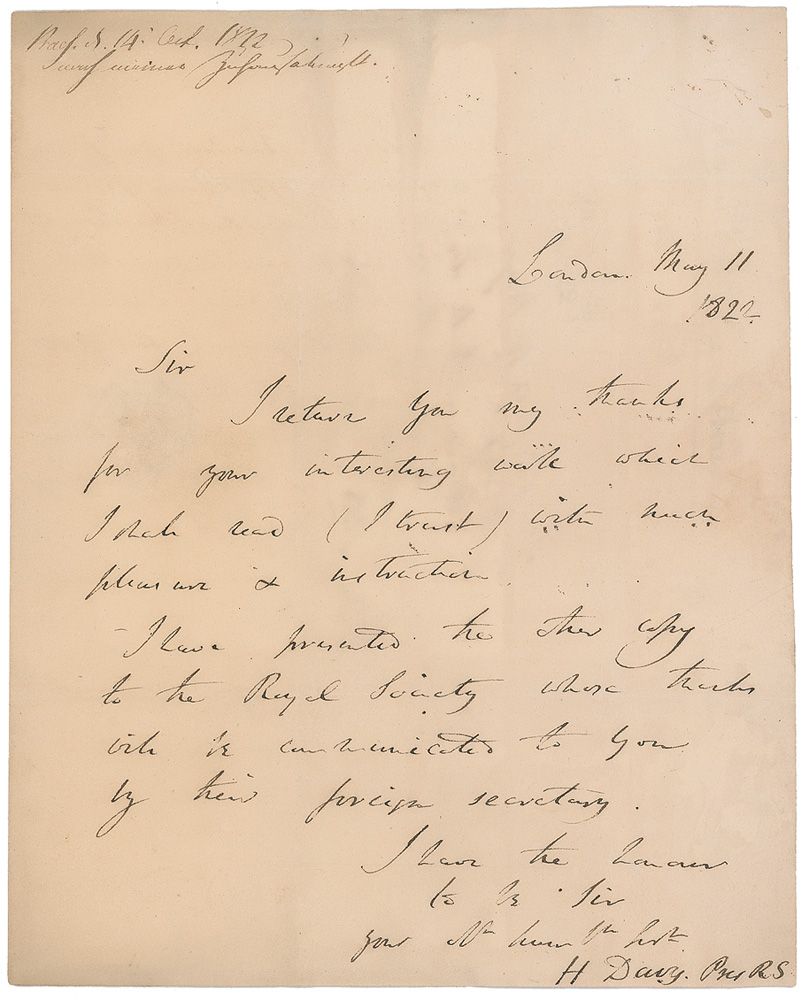 14. Oct. 1822
London. May 11
1822.
Sir
I return you my thanks
for your interesting work which
I shall read (I trust) with much
pleasure & instruction.
I have presented the other copy
to the Royal Society whose thanks
will be communicated to you
by their foreign secretary.
I have the honour
to be Sir
your obt humble servt
H Davy. Pres RS